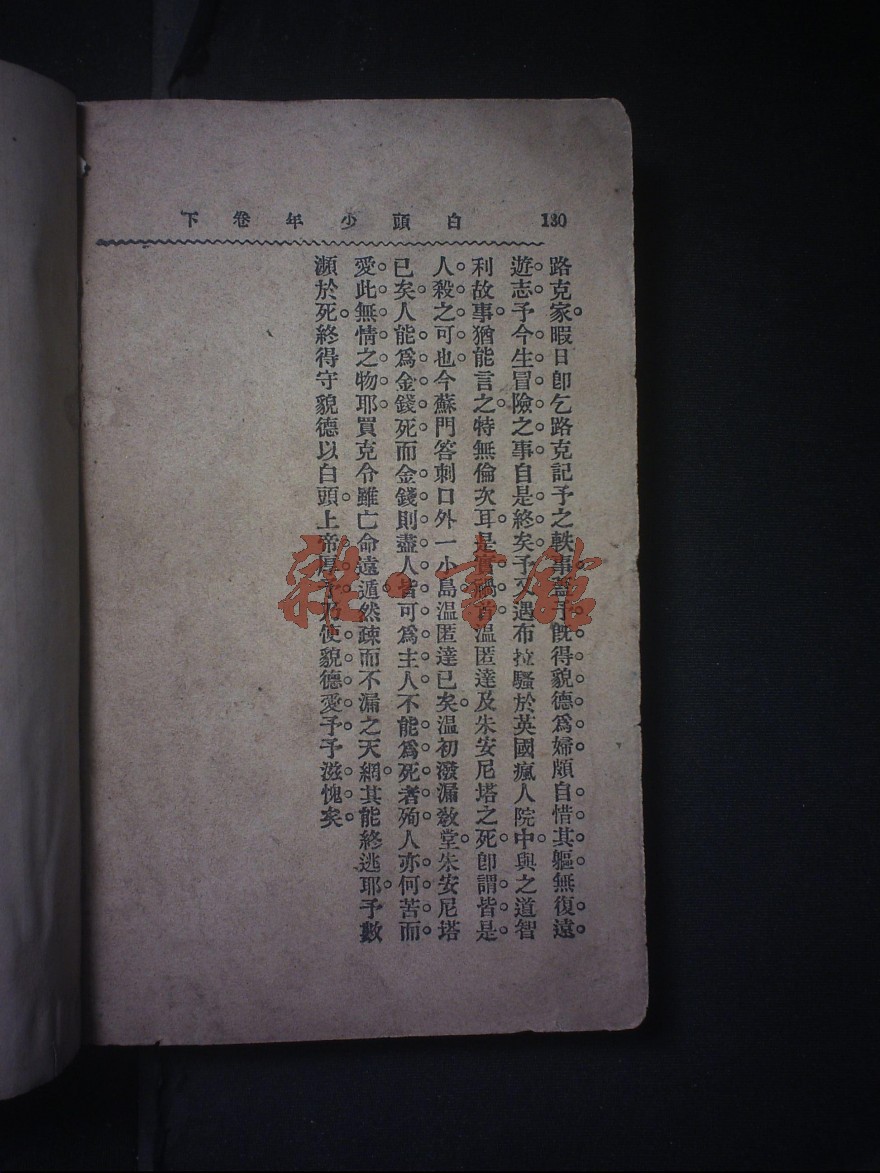 130
白頭少年卷下
路克家。暇日卽乞路克記予之軼事。蓋予旣得貌德爲婦。頗自惜其軀。無復遠
遊志。予今生冒險之事。自是終矣。予又遇布拉騷於英國瘋人院中。與之道智
利故事。猶能言之。特無倫次耳。是實禍首。溫匿達及朱安尼塔之死。卽謂皆是
人殺之可也。今蘇門答刺口外一小島。溫匿達已矣。溫初潑漏敎堂。朱安尼塔
已矣。人能爲金錢死。而金錢則盡人皆可爲主人。不能爲死者殉。人亦何苦而
愛此無情之物耶。買克令雖亡命遠遁。然疎而不漏之天網。其能終逃耶。予數
瀕於死。終得守貌德以白頭。上帝厚予。乃使貌德愛予。予滋愧矣。
雜·書館